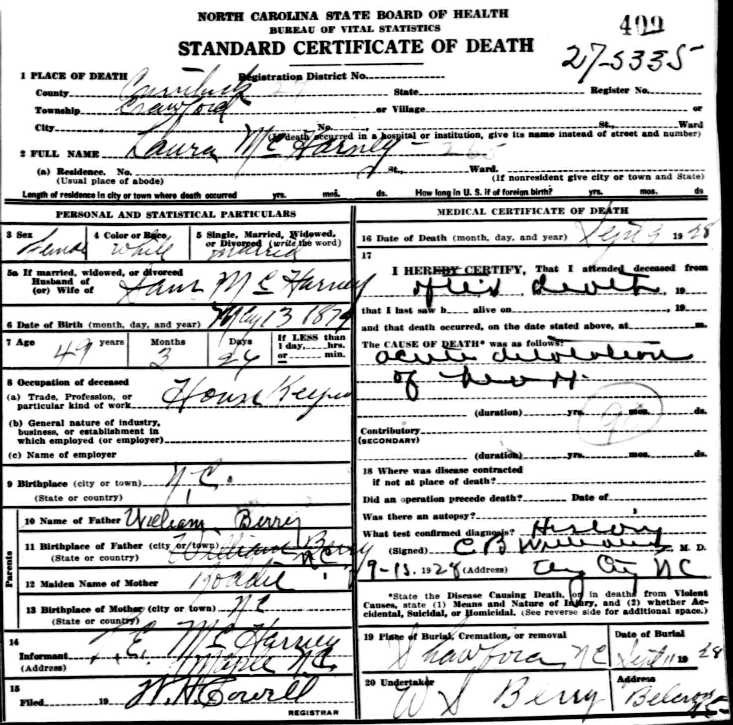 NORTH CAROLINA STATE BOARD OF HEALTH
BUREAU OF VITAL STATISTICS
STANDARD CERTIFICATE OF DEATH
409
27-5335
1 PLACE OF DEATH Registration District No.
County Currituck State Register No.
Township Crawford or Village or
City No. St., Ward
(If death occurred in a hospital or institution, give its name instead of street and number)
2 FULL NAME Laura McHarney
(a) Residence. No. St., Ward.
(Usual place of abode) (If nonresident give city or town and State)
Length of residence in city or town where death occurred yrs. mos. ds. How long in U. S. if of foreign birth? yrs. mos. ds.
PERSONAL AND STATISTICAL PARTICULARS
3 Sex 4 Color or Race, 5 Single, Married, Widowed, or Divorced (write the word)
Female White Married
5a If married, widowed, or divorced
Husband of
(or) Wife of McHarney
6 Date of Birth (month, day, and year) May 13 1879
7 Age years Months Days If LESS than 1 day, hrs. or min.
49 3 26
8 Occupation of deceased
(a) Trade, Profession, or particular kind of work House Keeper
(b) General nature of industry, business, or establishment in which employed (or employer)
(c) Name of employer
9 Birthplace (city or town) N.C.
(State or country)
Parents
10 Name of Father William Berry
11 Birthplace of Father (city or town) William Berry
(State or country) N.C.
12 Maiden Name of Mother
13 Birthplace of Mother (city or town) NC
(State or country)
14
Informant E. McHarney
(Address) N.C.
15
Filed 19 W. H. Cowell
REGISTRAR
MEDICAL CERTIFICATE OF DEATH
16 Date of Death (month, day, and year) Sept 9 1928
17
I HEREBY CERTIFY, That I attended deceased from
after death, 19
that I last saw h alive on , 19
and that death occurred, on the date stated above, at m.
The CAUSE OF DEATH* was as follows:
acute dilatation
of heart
(duration) yrs. mos. ds.
90
Contributory
(SECONDARY)
(duration) yrs. mos. ds.
18 Where was disease contracted
if not at place of death?
Did an operation precede death? Date of
Was there an autopsy?
What test confirmed diagnosis? History
(Signed) C B Williams M. D.
9-15. 1928 (Address) City NC
*State the Disease Causing Death, or in deaths from Violent Causes, state (1) Means and Nature of Injury, and (2) whether Accidental, Suicidal, or Homicidal. (See reverse side for additional space.)
19 Place of Burial, Cremation, or removal Date of Burial
NC Sept 11 1928
20 Undertaker Address
W S Berry